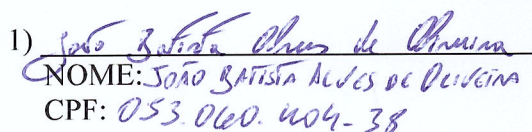 1) João Batista Alves de Oliveira
NOME: JOÃO BATISTA ALVES DE OLIVEIRA
CPF: 053.060.404-38